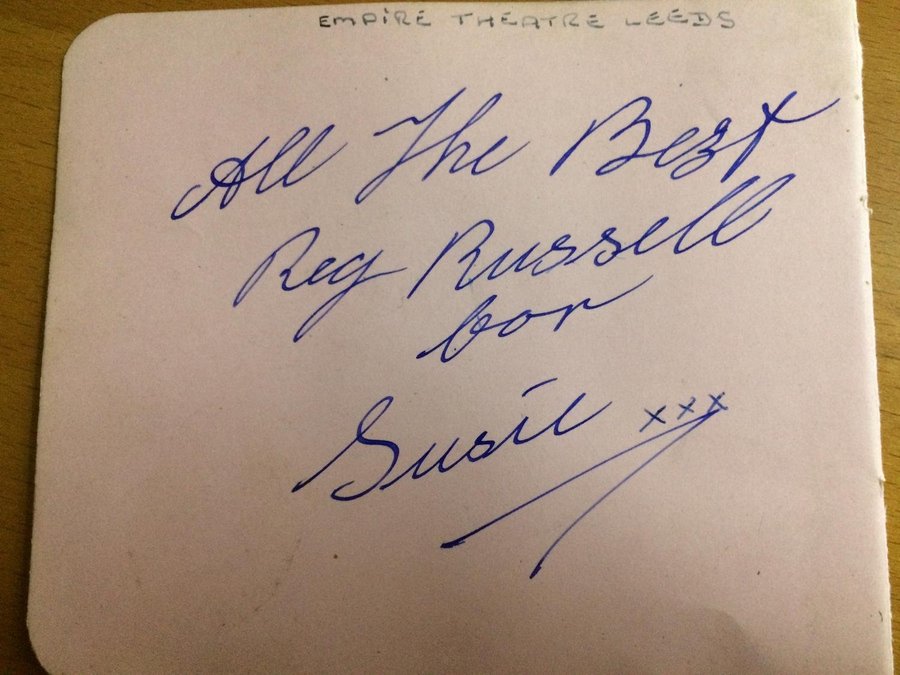 EMPIRE THEATRE LEEDS
All The Best
Reg Russell
for
Susie xxx